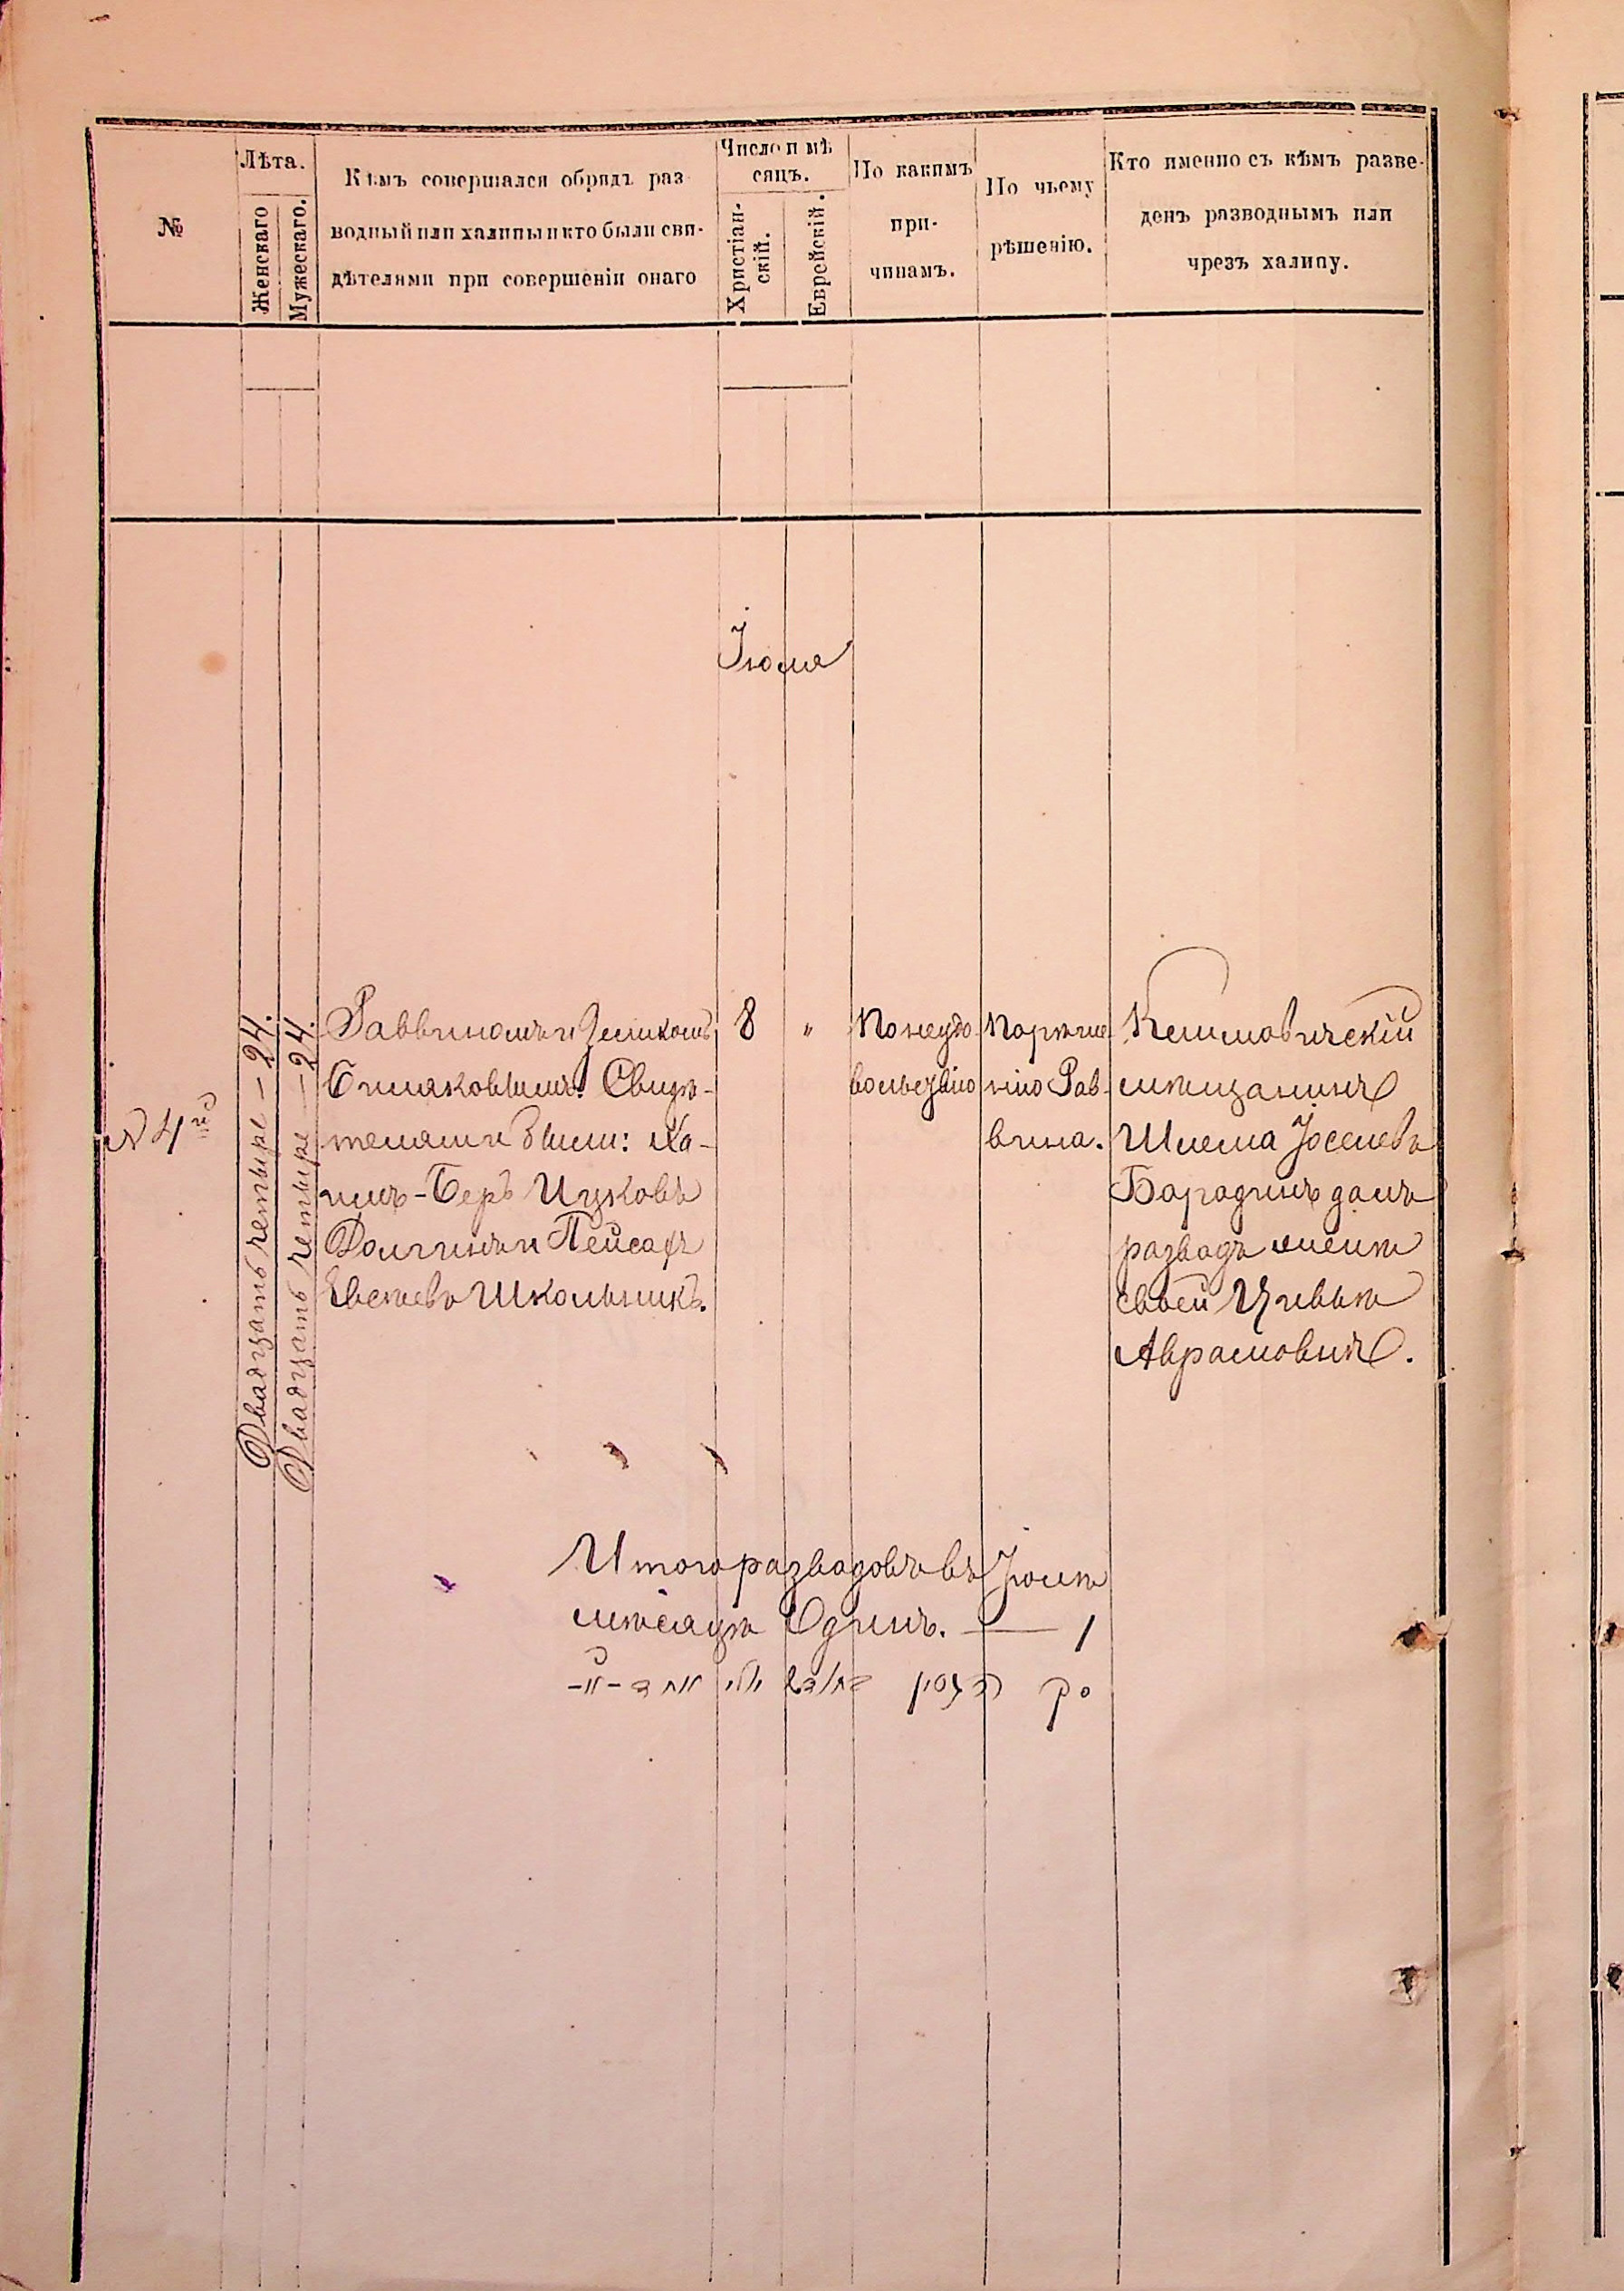 №
Лѣта.
Женскаго
Мужескаго.
Кѣмъ совершался обрядъ раз
водный или халипы и кто были сви-
дѣтелями при совершеніи онаго
Число и мѣ
сяцъ.
Христіан-
скій.
Еврейскій.
По какимъ
при-
чинамъ.
По чьему
рѣшенію.
Кто именно съ кѣмъ разве-
денъ разводнымъ или
чрезъ халипу.
Іюля
№ 4й
Двадцать четыре — 24.
Двадцать четыре — 24.
Раввиномъ
Свидѣ-
телями были: Ха-
имъ-Беръ Ицковъ
Долгинъ и Пейсахъ
Школьникъ.
8
"
По неудо
вольствію
По рѣше
нію Рав-
вина.
мѣщанинъ
Шлема Іоселевъ
Бородинъ далъ
разводъ женѣ
своей Цивьѣ
Абрамовнѣ.
Итого разводовъ въ Іюлѣ
мѣсяцѣ Одинъ. — 1